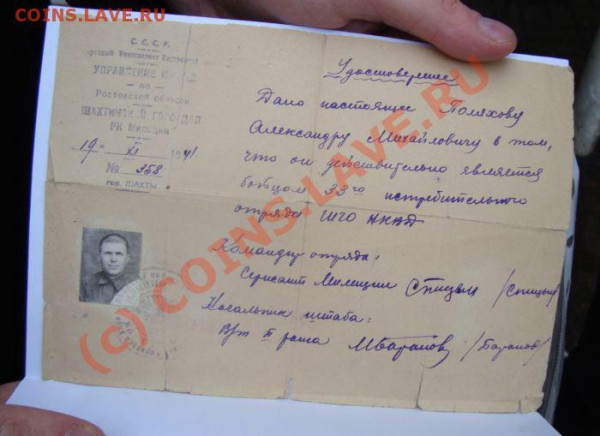 COINS.LAVE.RU
С.С.С.Р.
Народный Комиссариат Внутренних
УПРАВЛЕНИЕ
по
Ростовской области
ШАХТИНСКИЙ ГОРОТДЕЛ
РК Милиции
19 XI 1941
№ 358
гор. ШАХТЫ
Удостоверение
Дано настоящее Поляхову
Александру Михайловичу в том,
что он действительно является
бойцом 33го истребительного
отряда ШГО НКВД
Командир отряда:
Сержант Милиции Спицын /Спицын/
Начальник штаба:
В/т II ранга МБаранов /Баранов/
(c) COINS.LAVE.RU